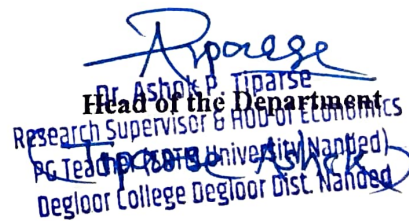 Dr. Ashok P. Tiparse
Head of the Department
Research Supervisor & HOD of Economics
PG Teacher (SRTM University Nanded)
Tiparse Ashok
Degloor College Degloor Dist. Nanded